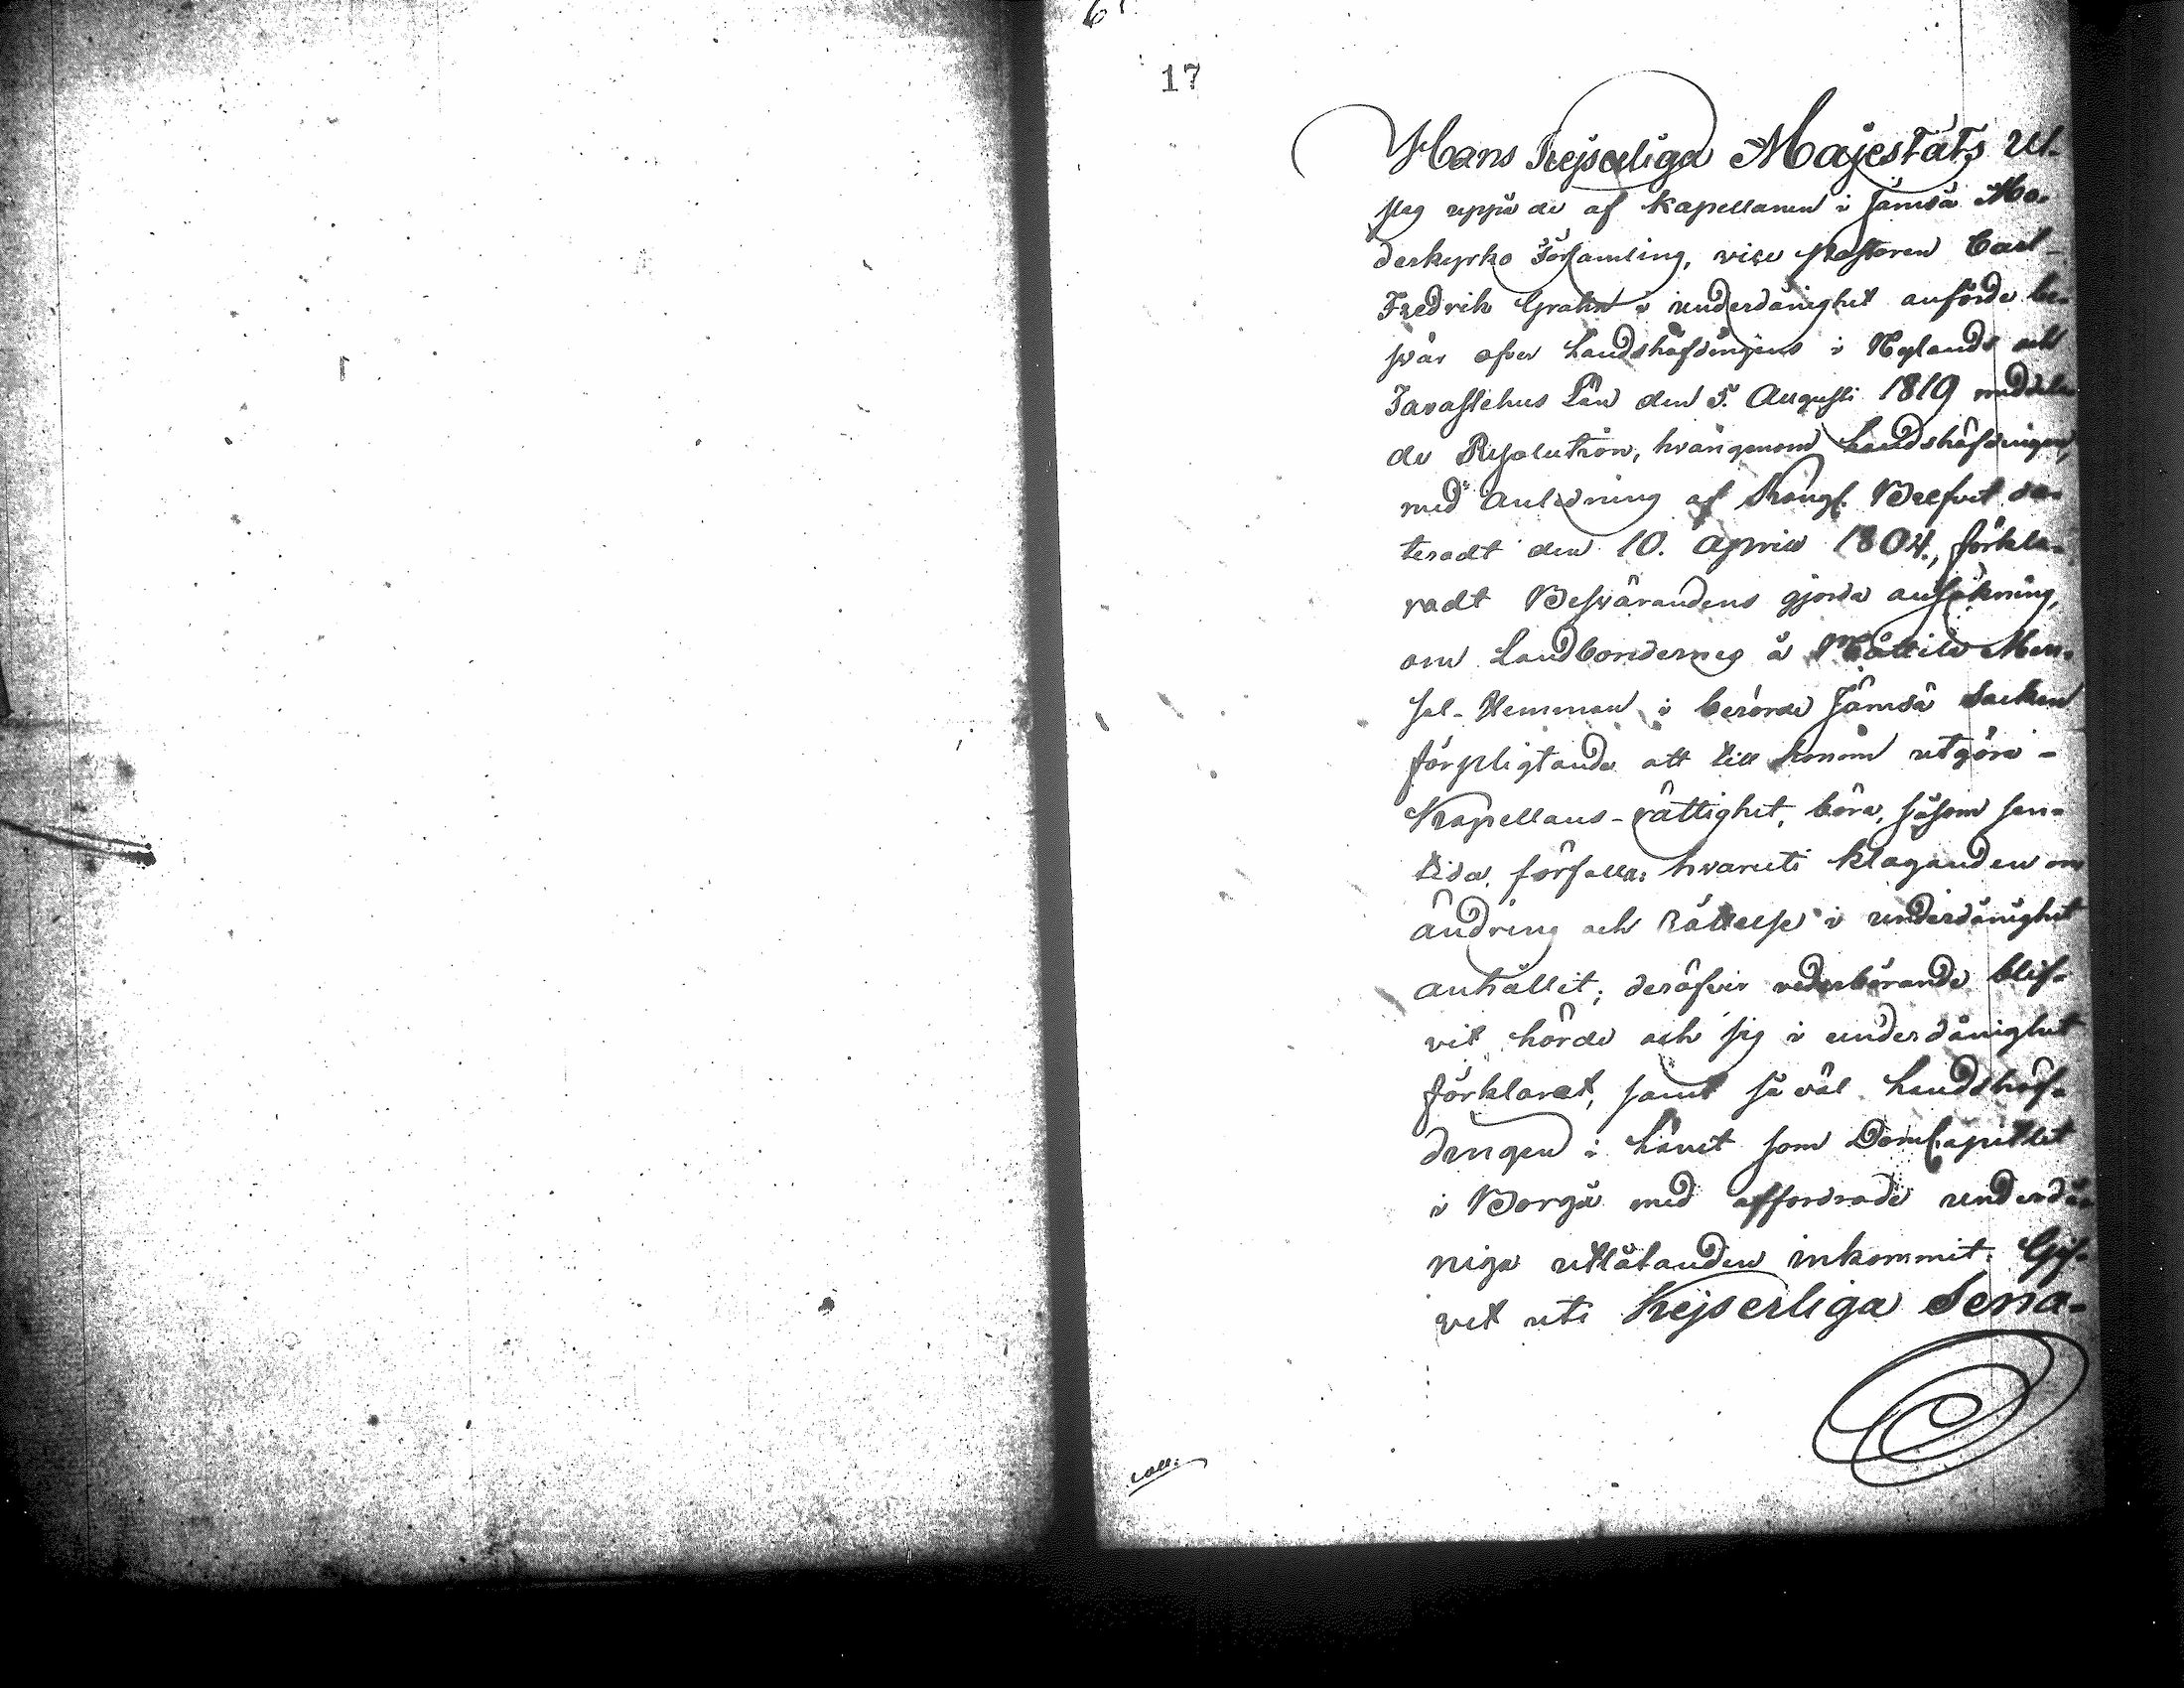 6
17
Hans Kejserliga Majestäts Ut-
slag uppå de af Kapellanen i Jämsä Mo-
derkyrko Församling, vice Pastoren Carl
Fredrik Grahn i underdånighet anförde be-
svär öfver Landshöfdingens i Nylands och
Tavastehus Län den 5. Augusti 1819 meddela-
de Resolution, hvarigenom Landshöfdingen,
med anledning af Kongl. Brefvet da-
teradt den 10. April 1804, förkla-
radt Besvärandens gjorda ansökning,
om Landbondernes å Mattila Men-
sal-Hemman i berörde Jämsä Socken
förpligtande att till honom utgöra
Kapellans-rättighet, böra, såsom sen-
tida, förfalla: hvaruti klaganden om
ändring och rättelse i underdånighet
anhållit; deröfver vederbörande blif-
vit hörde och sig i underdånighet
förklarat, samt så väl Landshöf-
dingen i Länet som DomCapitlet
i Borgå med affordrade underdå-
niga utlåtanden inkommit. Gif-
vet uti Kejserliga Sena-
coll.